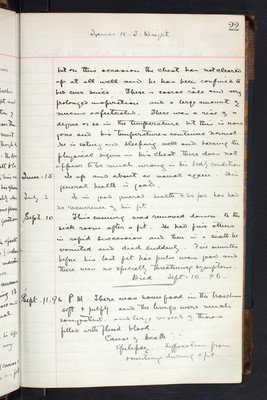 22
James H. J. Wright.
but on this occasion the chest has not cleared
up at all well and he has been confined to
bed ever since. There is coarse râle and very
prolonged expiration and a large amount of
mucus expectorated. There was a rise of a
degree or so in the temperature but this is now
gone and his temperature continues normal.
He is eating and sleeping well and barring the
physical signs in his chest there does not
appear to be much wrong in his bodily condition
June. 15. Is up and about as usual again. His
general health is good.
July. 2 Is in good general health & so far has had
no recurrence of his fit.
Sept. 10. This evening was removed down to the
sick room after a fit. He had five others
in rapid succession and then in a sixth he
vomited and died suddenly. Five minutes
before his last fit his pulse was good and
there were no specially threatening symptoms.
Died Sept. 10. 96.
Sept. 11. 96 P.M. There was found food in the bronchus
soft & pulpy and the lungs were much
congested and large vessels of thorax
filled with fluid blood.
Cause of death
Epilepsy. Suffocation from
vomiting during a fit.